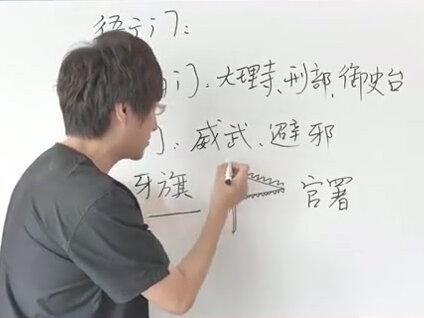 衙门：
大理寺、刑部、御史台
：威武、避邪
牙旗 官署